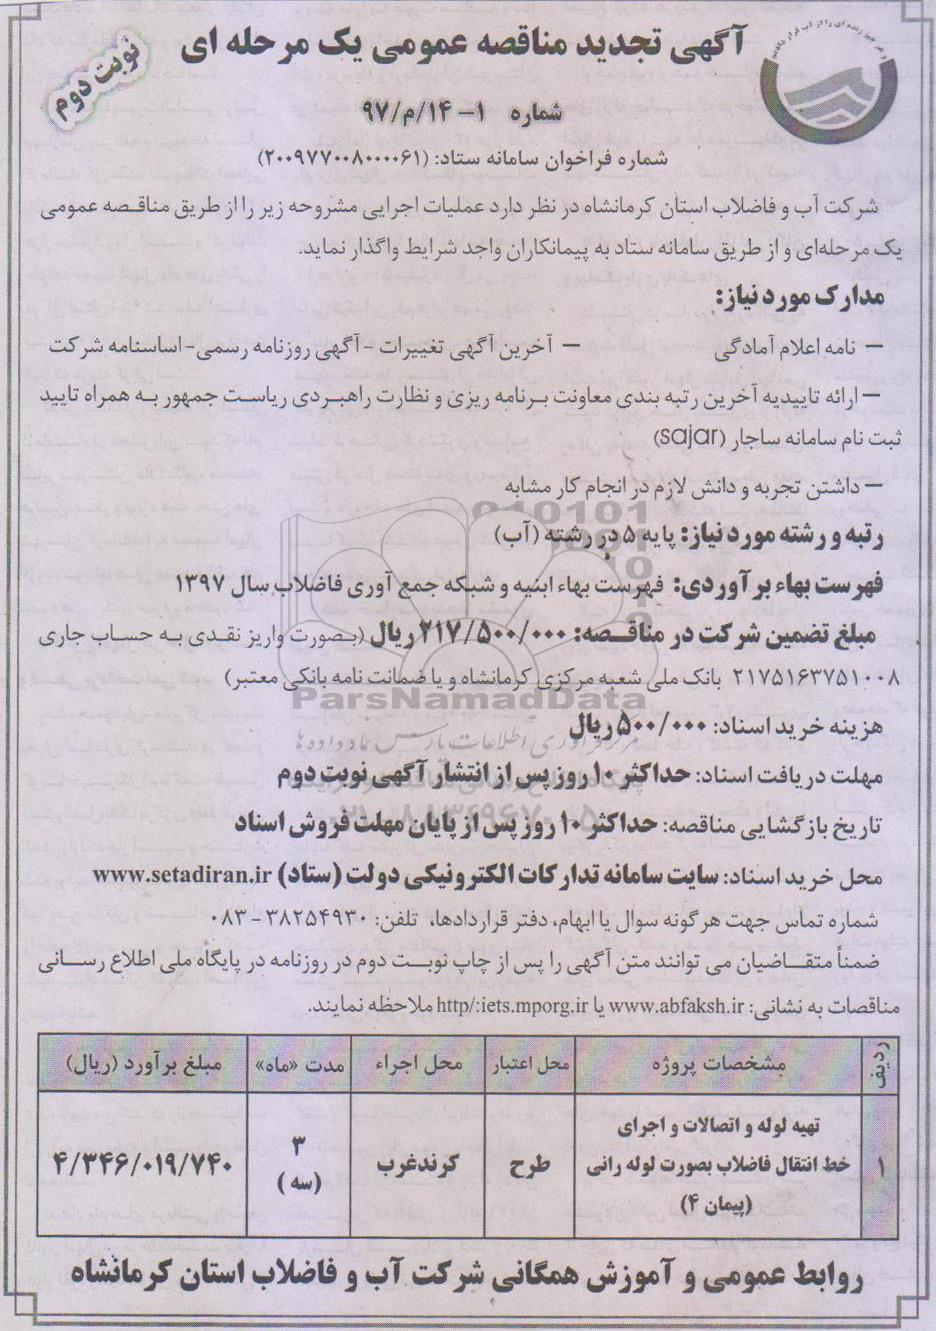 آگهی تجدید مناقصه عمومی یک مرحله ای
نوبت دوم
شماره ۱- ۱۴/م/۹۷
شماره فراخوان سامانه ستاد: (۲۰۰۹۷۷۰۰۸۰۰۰۰۶۱)
شرکت آب و فاضلاب استان کرمانشاه در نظر دارد عملیات اجرایی مشروحه زیر را از طریق مناقصه عمومی
یک مرحله‌ای و از طریق سامانه ستاد به پیمانکاران واجد شرایط واگذار نماید.
مدارک مورد نیاز:
– نامه اعلام آمادگی – آخرین آگهی تغییرات - آگهی روزنامه رسمی - اساسنامه شرکت
– ارائه تاییدیه آخرین رتبه بندی معاونت برنامه ریزی و نظارت راهبردی ریاست جمهور به همراه تایید
ثبت نام سامانه ساجار (sajar)
– داشتن تجربه و دانش لازم در انجام کار مشابه
رتبه و رشته مورد نیاز: پایه ۵ در رشته (آب)
فهرست بهاء برآوردی: فهرست بهاء ابنیه و شبکه جمع آوری فاضلاب سال ۱۳۹۷
مبلغ تضمین شرکت در مناقصه: ۲۱۷/۵۰۰/۰۰۰ ریال (بصورت واریز نقدی به حساب جاری
۲۱۷۵۱۶۳۷۵۱۰۰۸ بانک ملی شعبه مرکزی کرمانشاه و یا ضمانت نامه بانکی معتبر)
ParsNamadData
هزینه خرید اسناد: ۵۰۰/۰۰۰ ریال
مهلت دریافت اسناد: حداکثر ۱۰ روز پس از انتشار آگهی نوبت دوم
تاریخ بازگشایی مناقصه: حداکثر ۱۰ روز پس از پایان مهلت فروش اسناد
محل خرید اسناد: سایت سامانه تدارکات الکترونیکی دولت (ستاد) www.setadiran.ir
شماره تماس جهت هر گونه سوال یا ابهام، دفتر قراردادها، تلفن: ۳۸۲۵۴۹۳۰-۰۸۳
ضمناً متقاضیان می توانند متن آگهی را پس از چاپ نوبت دوم در روزنامه در پایگاه ملی اطلاع رسانی
مناقصات به نشانی: www.abfaksh.ir یا http/:iets.mporg.ir ملاحظه نمایند.
ردیف مشخصات پروژه محل اعتبار محل اجراء مدت «ماه» مبلغ برآورد (ریال)
۱ تهیه لوله و اتصالات و اجرای
خط انتقال فاضلاب بصورت لوله رانی
(پیمان ۴)
طرح کرندغرب ۳
(سه) ۴/۳۴۶/۰۱۹/۷۴۰
روابط عمومی و آموزش همگانی شرکت آب و فاضلاب استان کرمانشاه